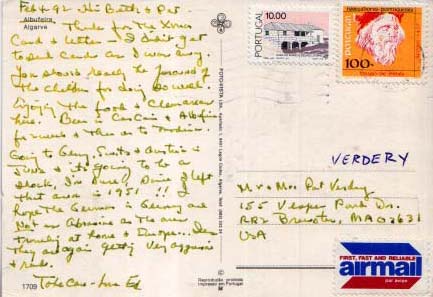 Feb 4 92. Hi Beth & Pat.
Albufeira
Algarve
Thanks for the Xmas
Card & letter. I didn't get
to send cards as I was away.
You should really be proud of
the children for doing so well.
Enjoying the food & 
here. Been in Cascais & Albufeira
for weeks & then on to 
Going to Germany, & Austria in
June & it's going to be a
shock, I'm sure, since I left
that area in 1951 !!! I
hope the Germans in Germany are
Not as abrasive as the ones
travelling at home & Europe...
They are again getting very aggressive
& rude.
Take Care - Luv Ed
1709
FOTO-VISTA
Reprodução proibida
Impresso em Portugal
10.00
PORTUGAL
navegadores portugueses
portugal
100.
VERDERY
Mr & Mrs Pat Verdery
155 Vesper Pond Dr.
RR2 Brewster, MA 02631
USA
FIRST, FAST AND RELIABLE
airmail
par avion